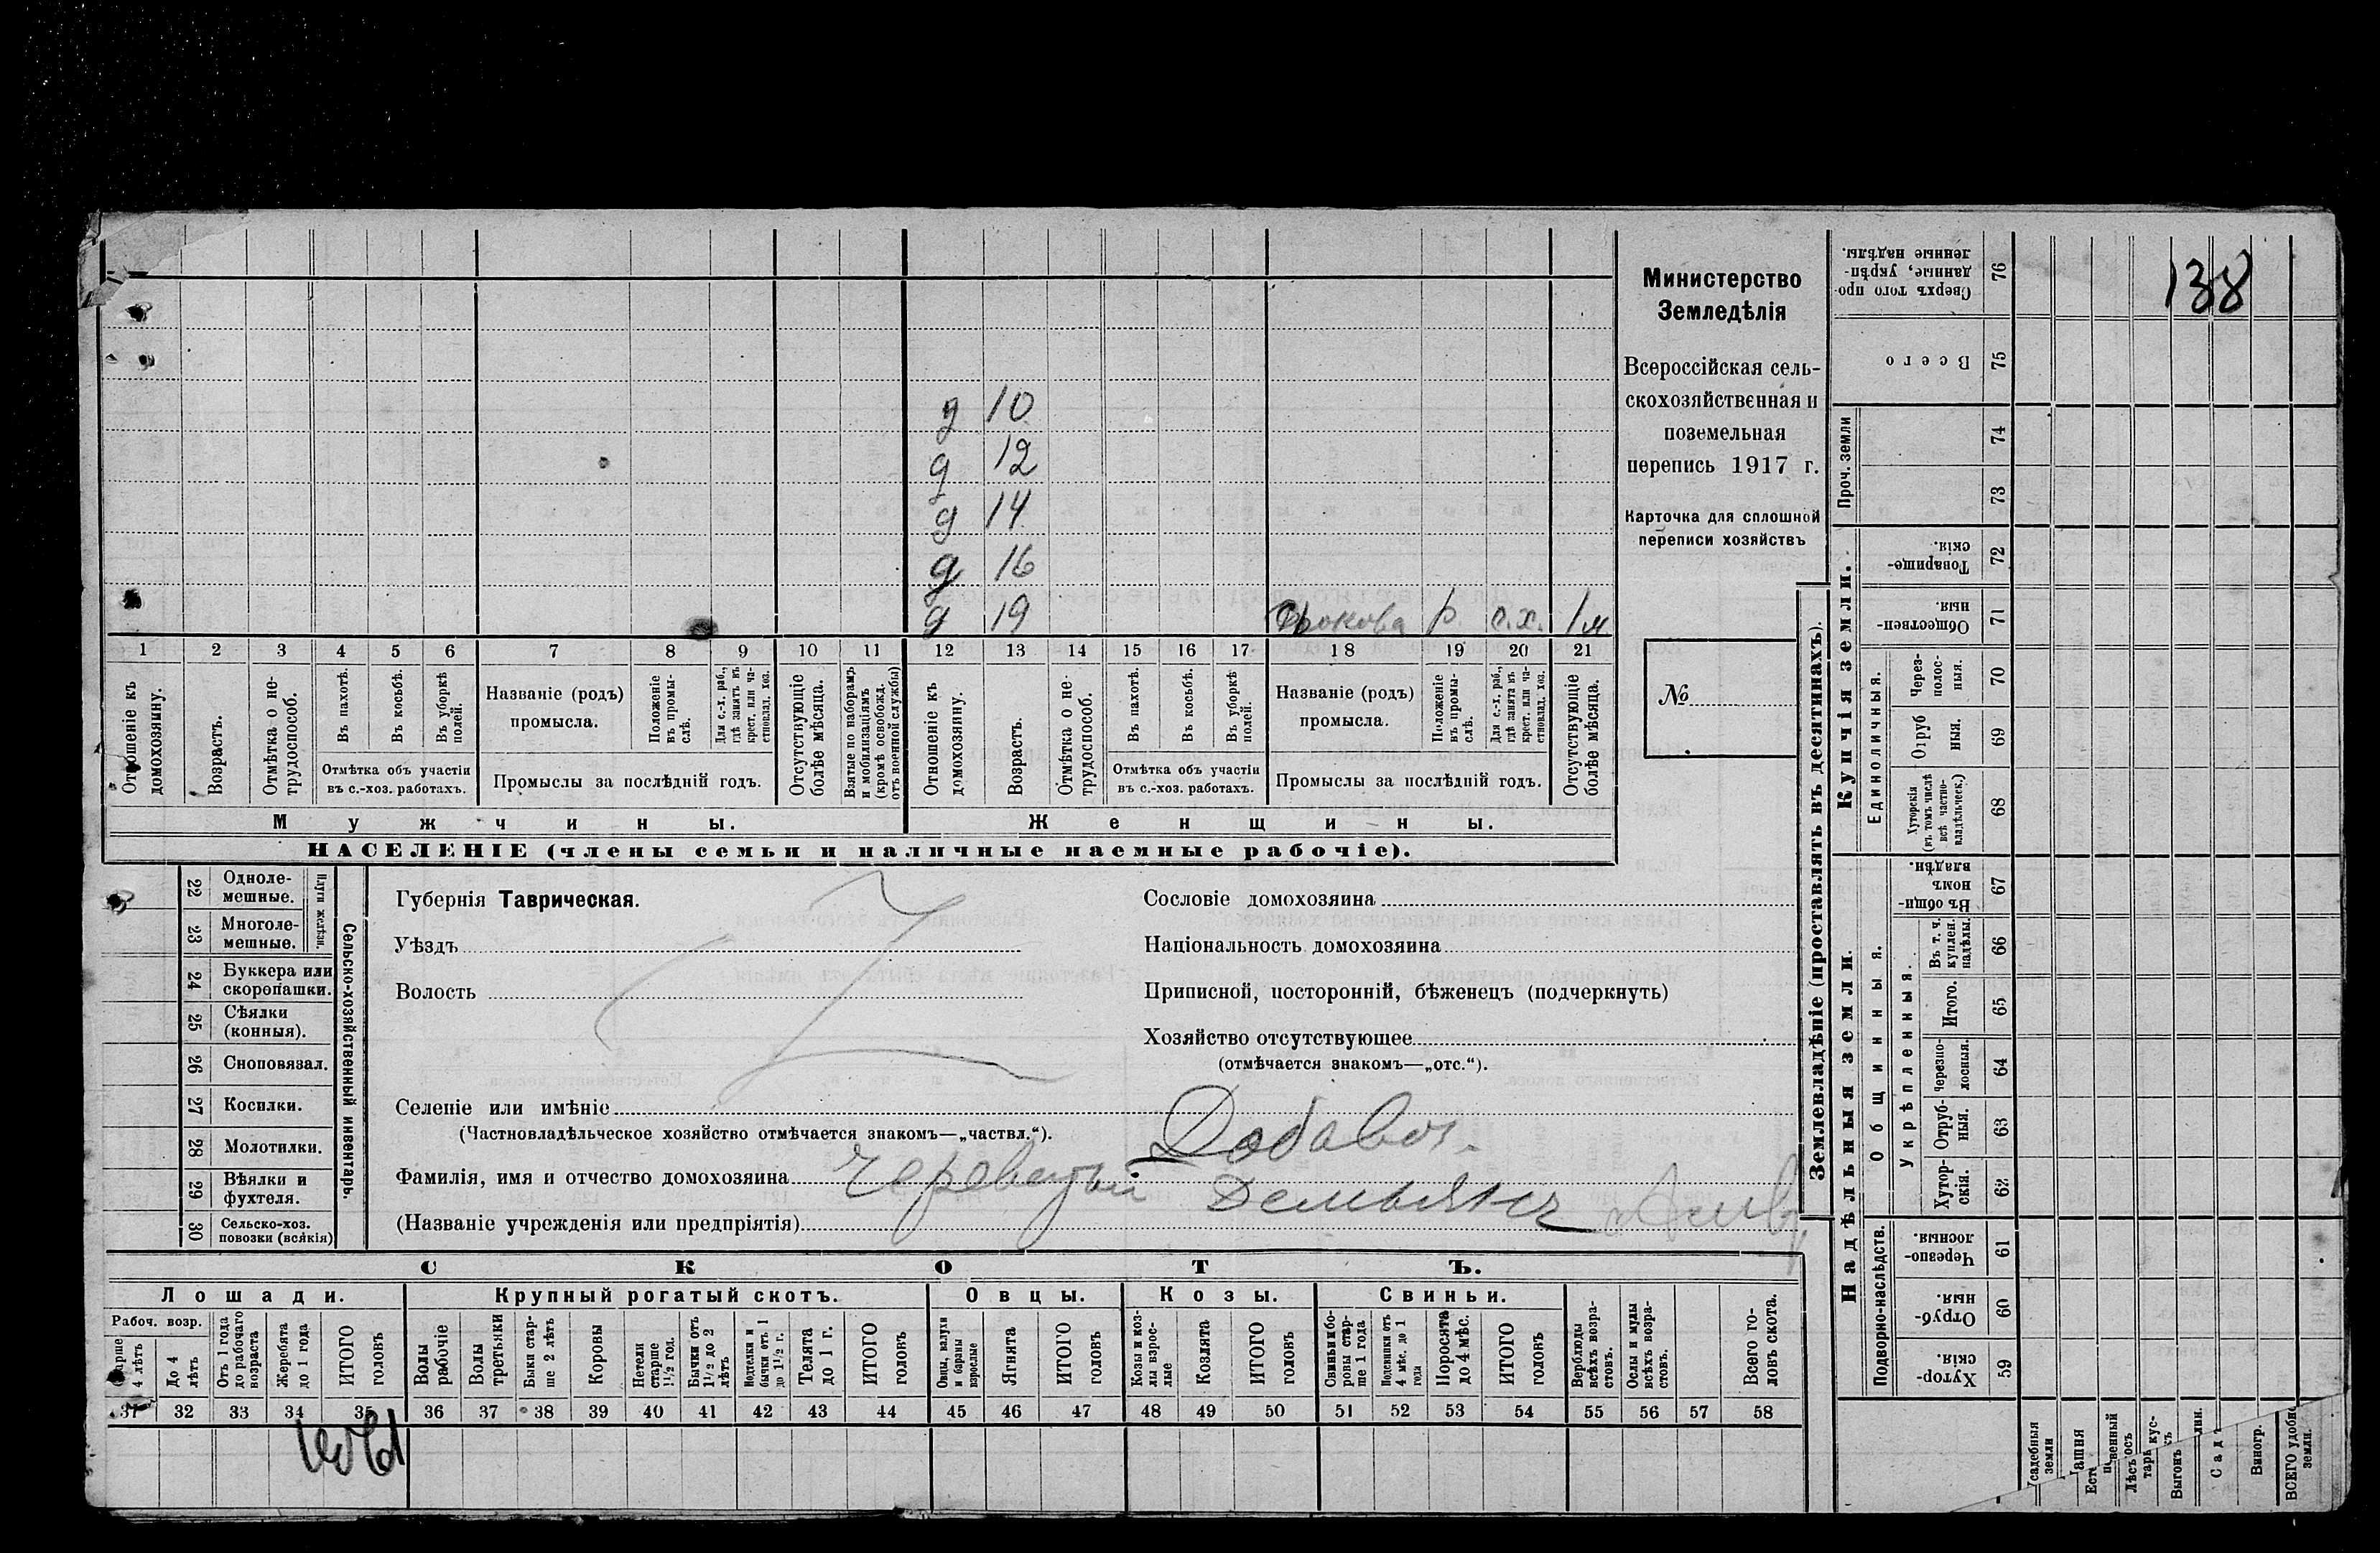 138
Министерство
Земледѣлія
Всероссійская сель-
скохозяйственная и
поземельная
перепись 1917 г.
Карточка для сплошной
переписи хозяйствъ
№
д 10
д 12
д 14
д 16
д 19 р. с.х. 1 м
1 2 3 4 5 6 7 8 9 10 11 12 13 14 15 16 17 18 19 20 21
Отношеніе къ домохозяину.
Возрастъ.
Отмѣтка о не-трудоспособ.
Въ пахотѣ.
Въ косьбѣ.
Въ уборкѣ полей.
Отмѣтка объ участіи
въ с.-хоз. работахъ.
Названіе (родъ)
промысла.
Положеніе въ промы-слѣ.
Для с.-х. раб., гдѣ занятъ въ крест. или ча-стновлад. хоз.
Промыслы за послѣдній годъ.
Отсутствующіе болѣе мѣсяца.
Взятые по наборамъ и мобилизаціямъ (кромѣ освобожд. отъ военной службы)
Отношеніе къ домохозяину.
Возрастъ.
Отмѣтка о не-трудоспособ.
Въ пахотѣ.
Въ косьбѣ.
Въ уборкѣ полей.
Отмѣтка объ участіи
въ с.-хоз. работахъ.
Названіе (родъ)
промысла.
Положеніе въ промы-слѣ.
Для с.-х. раб., гдѣ занята въ крест. или ча-стновлад. хоз.
Промыслы за послѣдній годъ.
Отсутствующіе болѣе мѣсяца.
Мужчины.
Женщины.
НАСЕЛЕНІЕ (члены семьи и наличные наемные рабочіе).
Сельско-хозяйственный инвентарь.
Плуги желѣзн.
22 Одноле-мешные.
23 Многоле-мешные.
24 Буккера или скоропашки.
25 Сѣялки (конныя).
26 Сноповязал.
27 Косилки.
28 Молотилки.
29 Вѣялки и фухтеля.
30 Сельско-хоз. повозки (всякія)
Губернія Таврическая.
Уѣздъ
Волость
Селеніе или имѣніе
(Частновладѣльческое хозяйство отмѣчается знакомъ—„частвл.“).
Фамилія, имя и отчество домохозяина
(Названіе учрежденія или предпріятія)
Сословіе домохозяина
Національность домохозяина
Приписной, посторонній, бѣженецъ (подчеркнуть)
Хозяйство отсутствующее
(отмѣчается знакомъ—„отс.“).
Добавоч.
Демьян
СКОТЪ.
Лошади.
Рабоч. возр.
Старше 4 лѣтъ
До 4 лѣтъ
Отъ 1 года до рабочаго возраста
Жеребята до 1 года
ИТОГО головъ
Крупный рогатый скотъ.
Волы рабочіе
Волы третьяки
Быки стар-ше 2 лѣтъ
Коровы
Нетели старше 1½ год.
Бычки отъ 1½ до 2 лѣтъ
бычки отъ 1 до 1½ г.
Телята до 1 г.
ИТОГО головъ
Овцы.
Овцы, валухи и бараны взрослые
Ягнята
ИТОГО головъ
Козы.
Козы и коз-лы взрос-лые
Козлята
ИТОГО головъ
Свиньи.
Свиньи и бо-ровы стар-ше 1 года
Подсвинки отъ 4 мѣс. до 1 года
Поросята до 4 мѣс.
ИТОГО головъ
Верблюды всѣхъ возра-стовъ.
Ослы и мулы всѣхъ возра-стовъ.
Всего го-ловъ скота.
31 32 33 34 35 36 37 38 39 40 41 42 43 44 45 46 47 48 49 50 51 52 53 54 55 56 57 58
Землевладѣніе (проставлять въ десятинахъ).
Купчія земли.
Проч. земли
Сверхъ того про-данные, укрѣп-ленные надѣлы. 76
Всего 75
74
73
Товарище-скія. 72
Обществен-ныя 71
Единоличныя.
Через-полос-ныя. 70
Отруб ныя. 69
Хуторскія (въ томъ числѣ всѣ частно-владѣльческ.) 68
Надѣльныя земли.
Общинныя.
Въ общин-номъ владѣн. 67
Укрѣпленныя.
Въ т. ч. куплен. надѣлы. 66
Итого. 65
Черезпо-лосныя. 64
Отруб-ныя. 63
Хутор-скія. 62
Подворно-наслѣдств.
Черезпо-лосныя 61
Отруб-ныя. 60
Хутор-скія. 59
Выгонъ
Виногр.
ВСЕГО удобн земли.